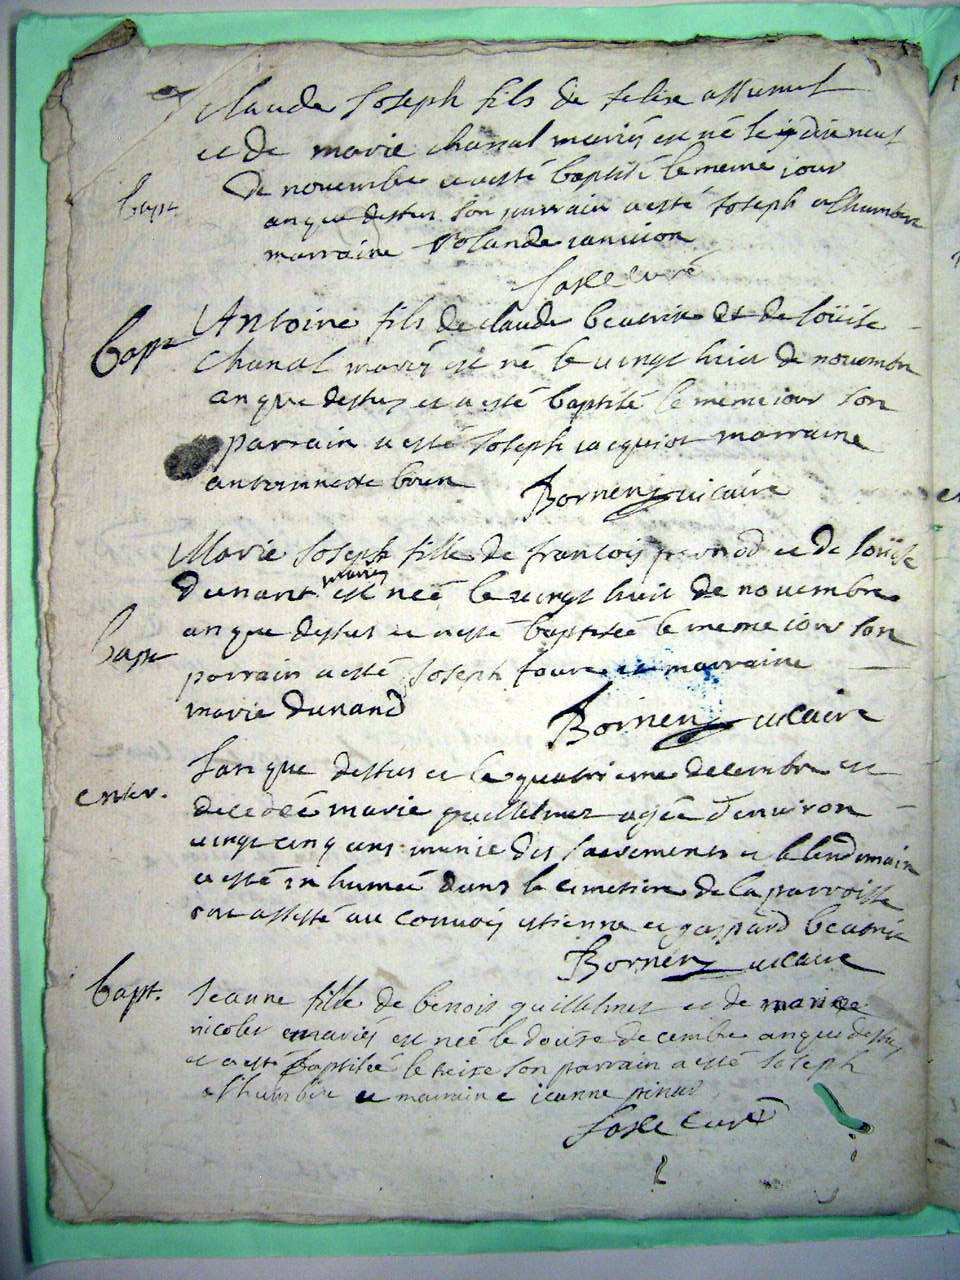 claude Joseph fils de felix
et de marie chanal mariés est né le dix neuf
Bapt. de novembre a esté baptisé le meme jour
an que dessus son parrain a esté Joseph
marraine
curé
Bapt Antoine fils de claude beatrix et de loüise
chanal mariés est né le vingt huit de novembre
an que dessus et a esté baptisé le meme iour son
parrain a esté Joseph iacquiot marraine
anthoinette
Bornens vicaire
Marie Joseph fille de francois pernod et de loüise
dunant mariés est neé le vingt huit de novembre
an que dessus et a esté baptiseé le meme iour son
Bapt parrain a esté Joseph favre et marraine
marie dunand
Bornens vicaire
Lan que dessus et le quatrieme decembre est
enter. decedeé marie guillelmet agée denviron
vingt cinq ans munie des sacrements et le lendemain
a esté inhumeé dans le cimetiere de la parroisse
ont assisté au convoy estienne et gaspard beatrix
Bornens vicaire
Bapt. Jeanne fille de benoit guillelmet et de marie
nicolet mariés est neé le douse decembre an que dessus
et a esté baptiseé le treise son parrain a esté Joseph
et marraine ieanne
curé